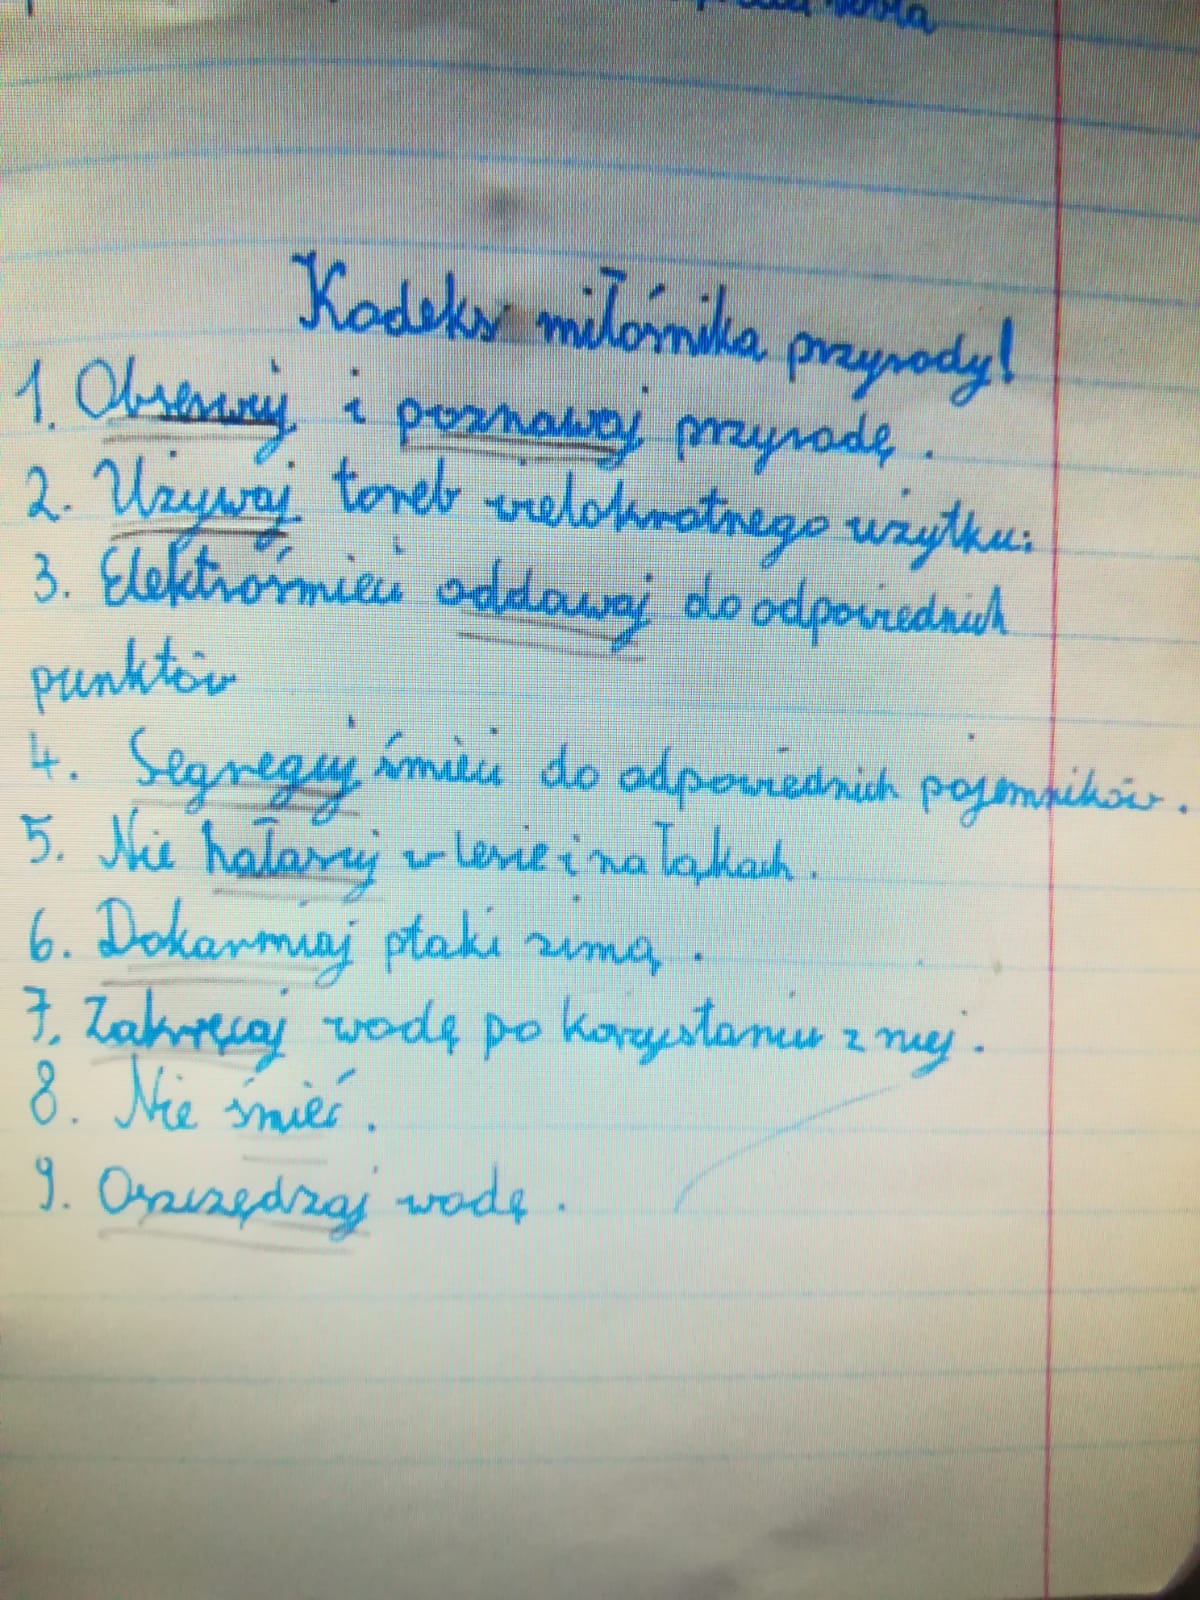 Kodeks miłośnika przyrody!
1. Obserwuj i poznawaj przyrodę.
2. Używaj toreb wielokrotnego użytku.
3. Elektrośmieci oddawaj do odpowiednich
punktów
4. Segreguj śmieci do odpowiednich pojemników.
5. Nie hałasuj w lesie i na łąkach.
6. Dokarmiaj ptaki zimą.
7. Zakręcaj wodę po korzystaniu z niej.
8. Nie śmieć.
9. Oszczędzaj wodę.